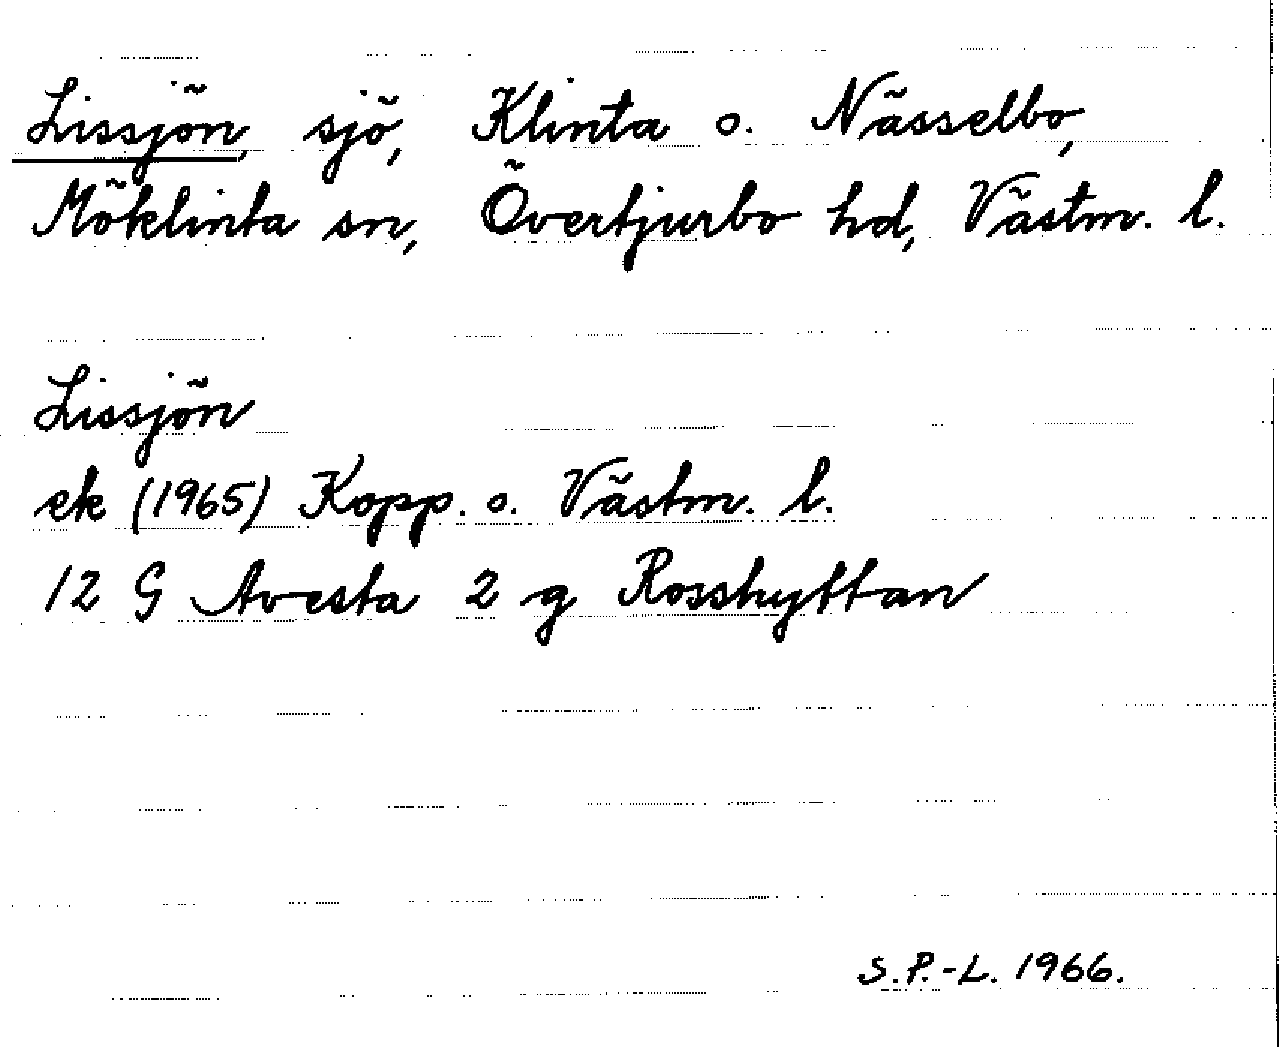 Lissjön, sjö, Klinta o. Nässelbo,
Möklinta sn, Övertjurbo hd, Västm. l.
Lissjön
ek (1965) Kopp. o. Västm. l.
12 G Avesta 2 g Rosshyttan
S.P.-L. 1966.